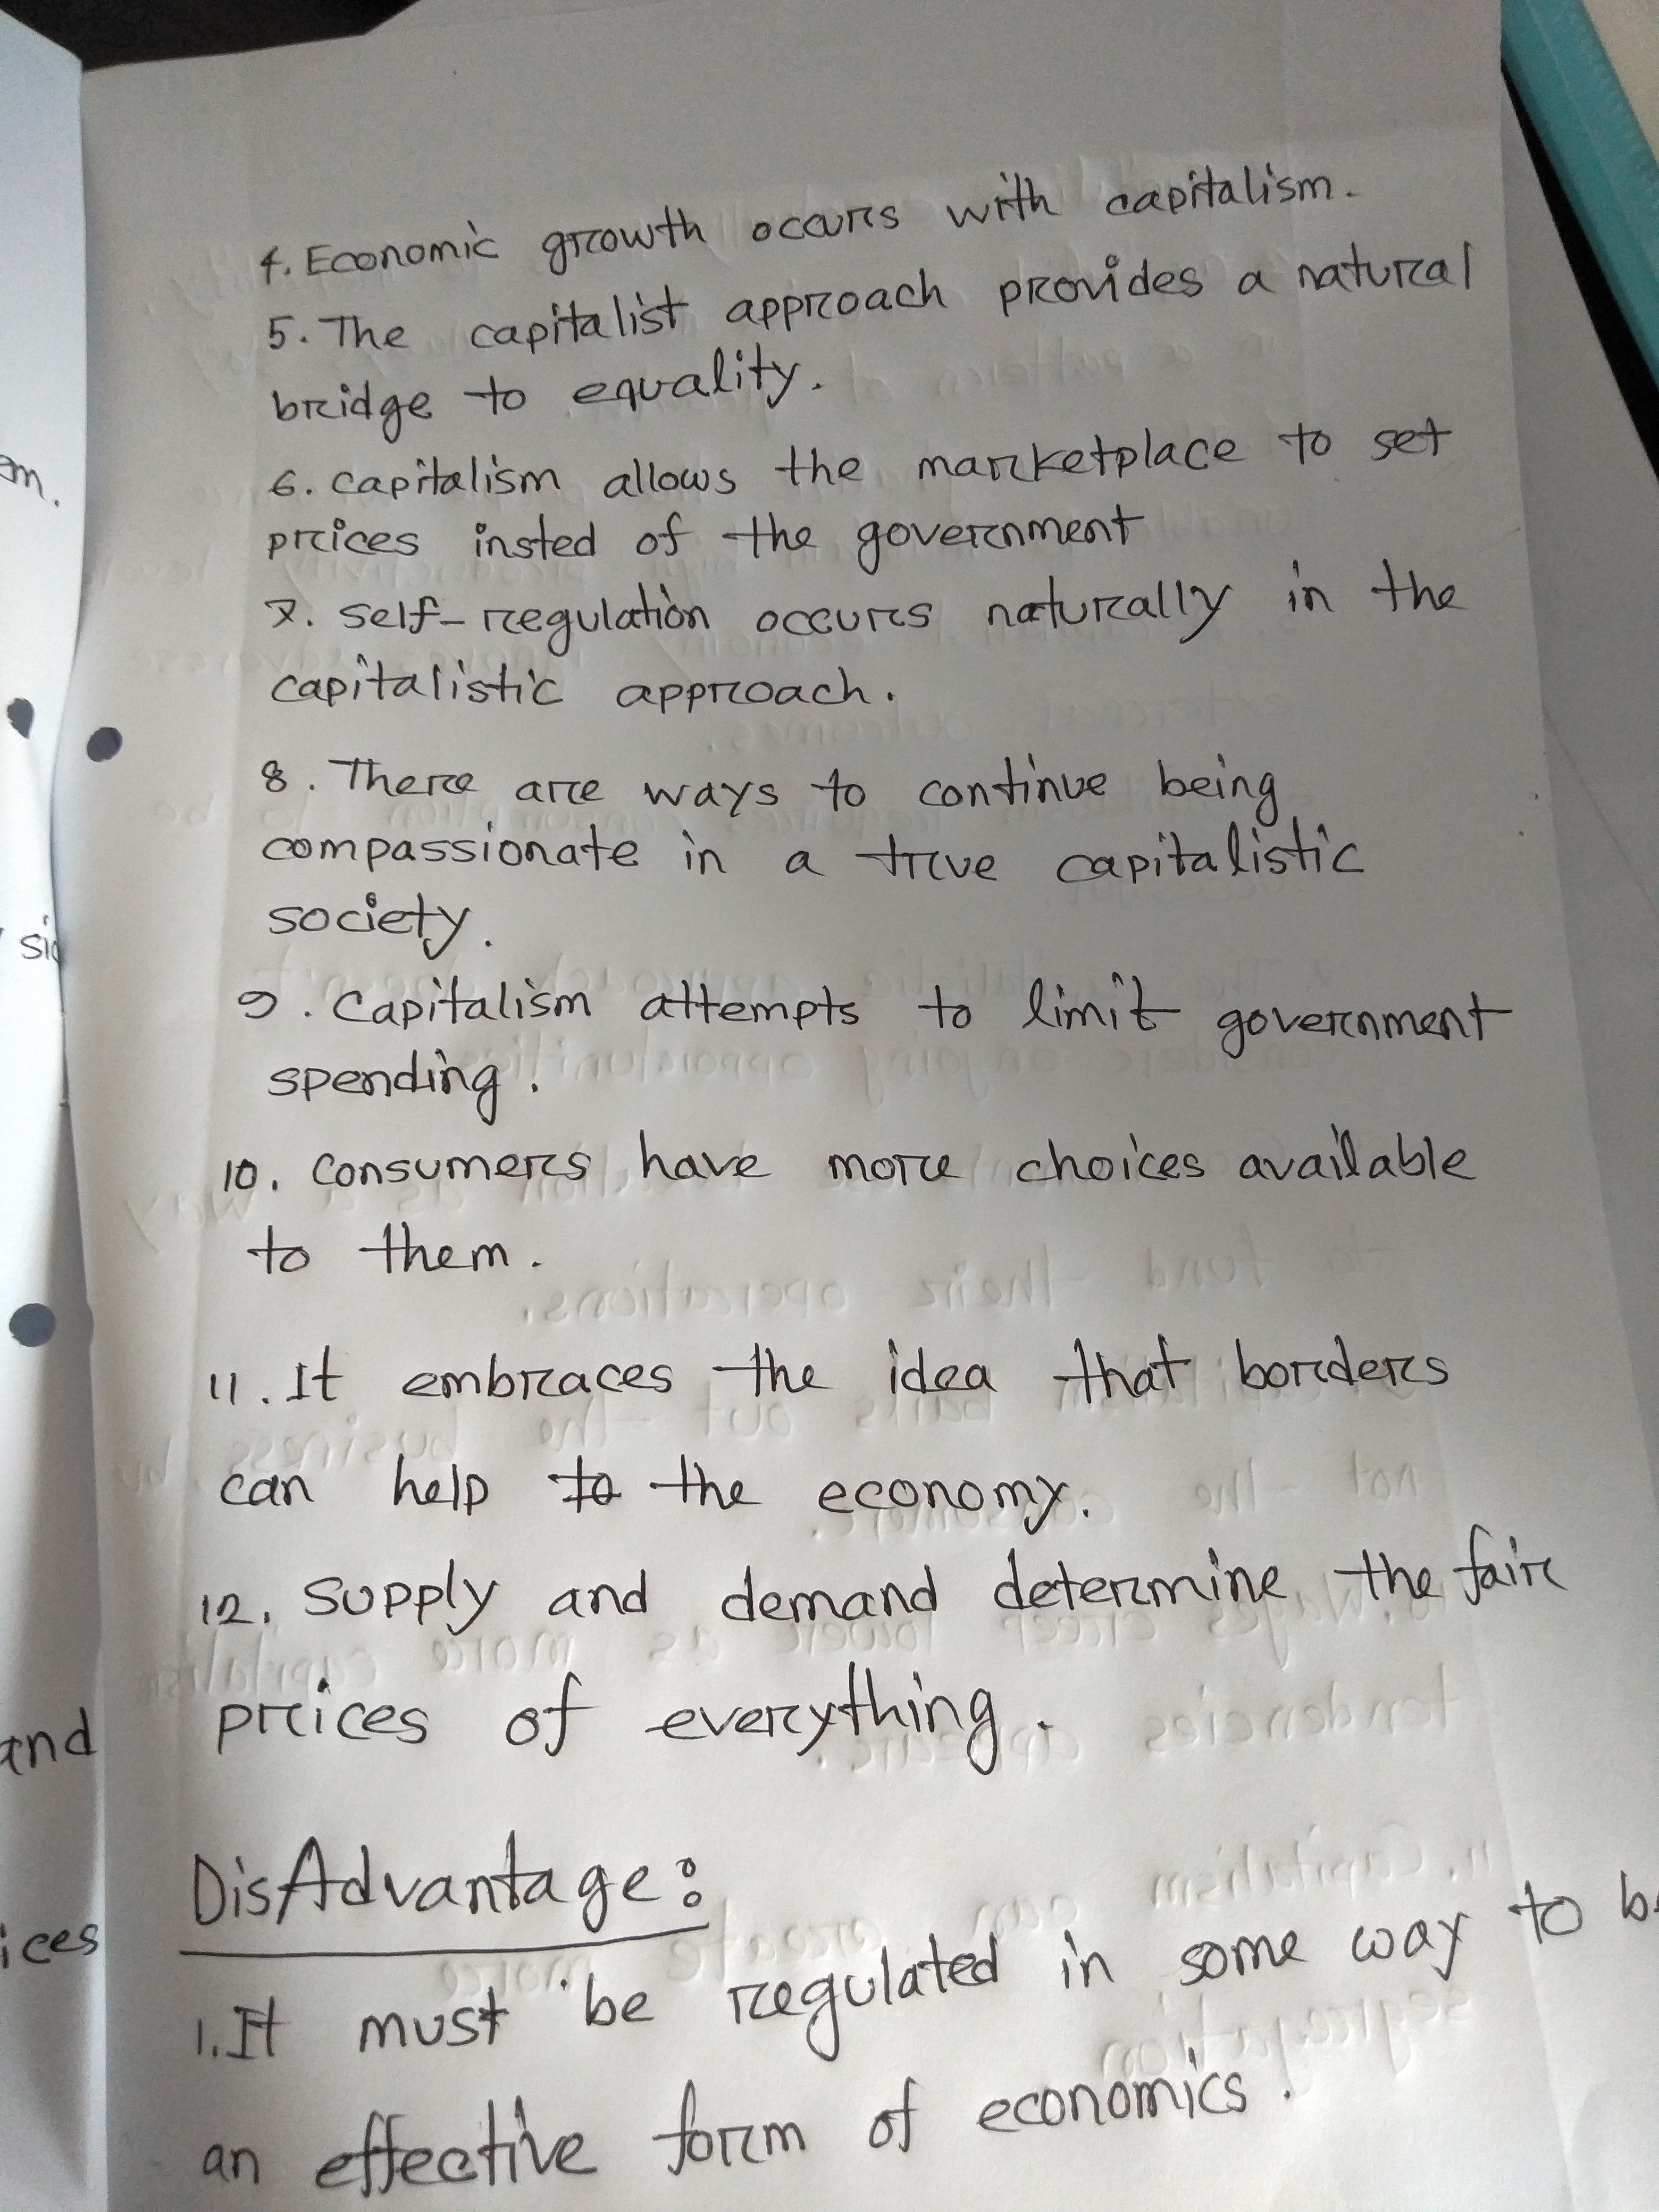 4. Economic growth occurs with capitalism.
5. The capitalist approach provides a natural
bridge to equality.
6. capitalism allows the marketplace to set
prices insted of the government
7. self-regulation occurs naturally in the
capitalistic approach.
8. There are ways to continue being
compassionate in a true capitalistic
society.
9. Capitalism attempts to limit government
spending.
10. consumers have more choices available
to them.
11. It embraces the idea that borders
can help to the economy.
12. supply and demand determine the fair
prices of everything.
DisAdvantage:
1. It must be regulated in some way to
an effective form of economics.
m.
and
ices